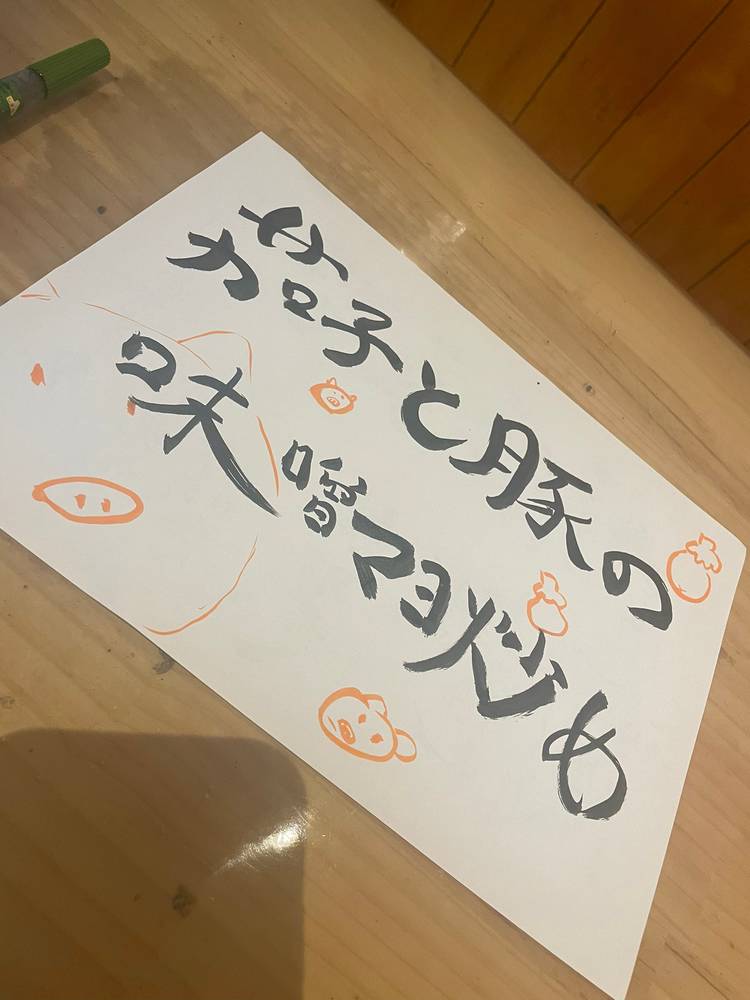 茄子と豚の
味噌マヨ炒め